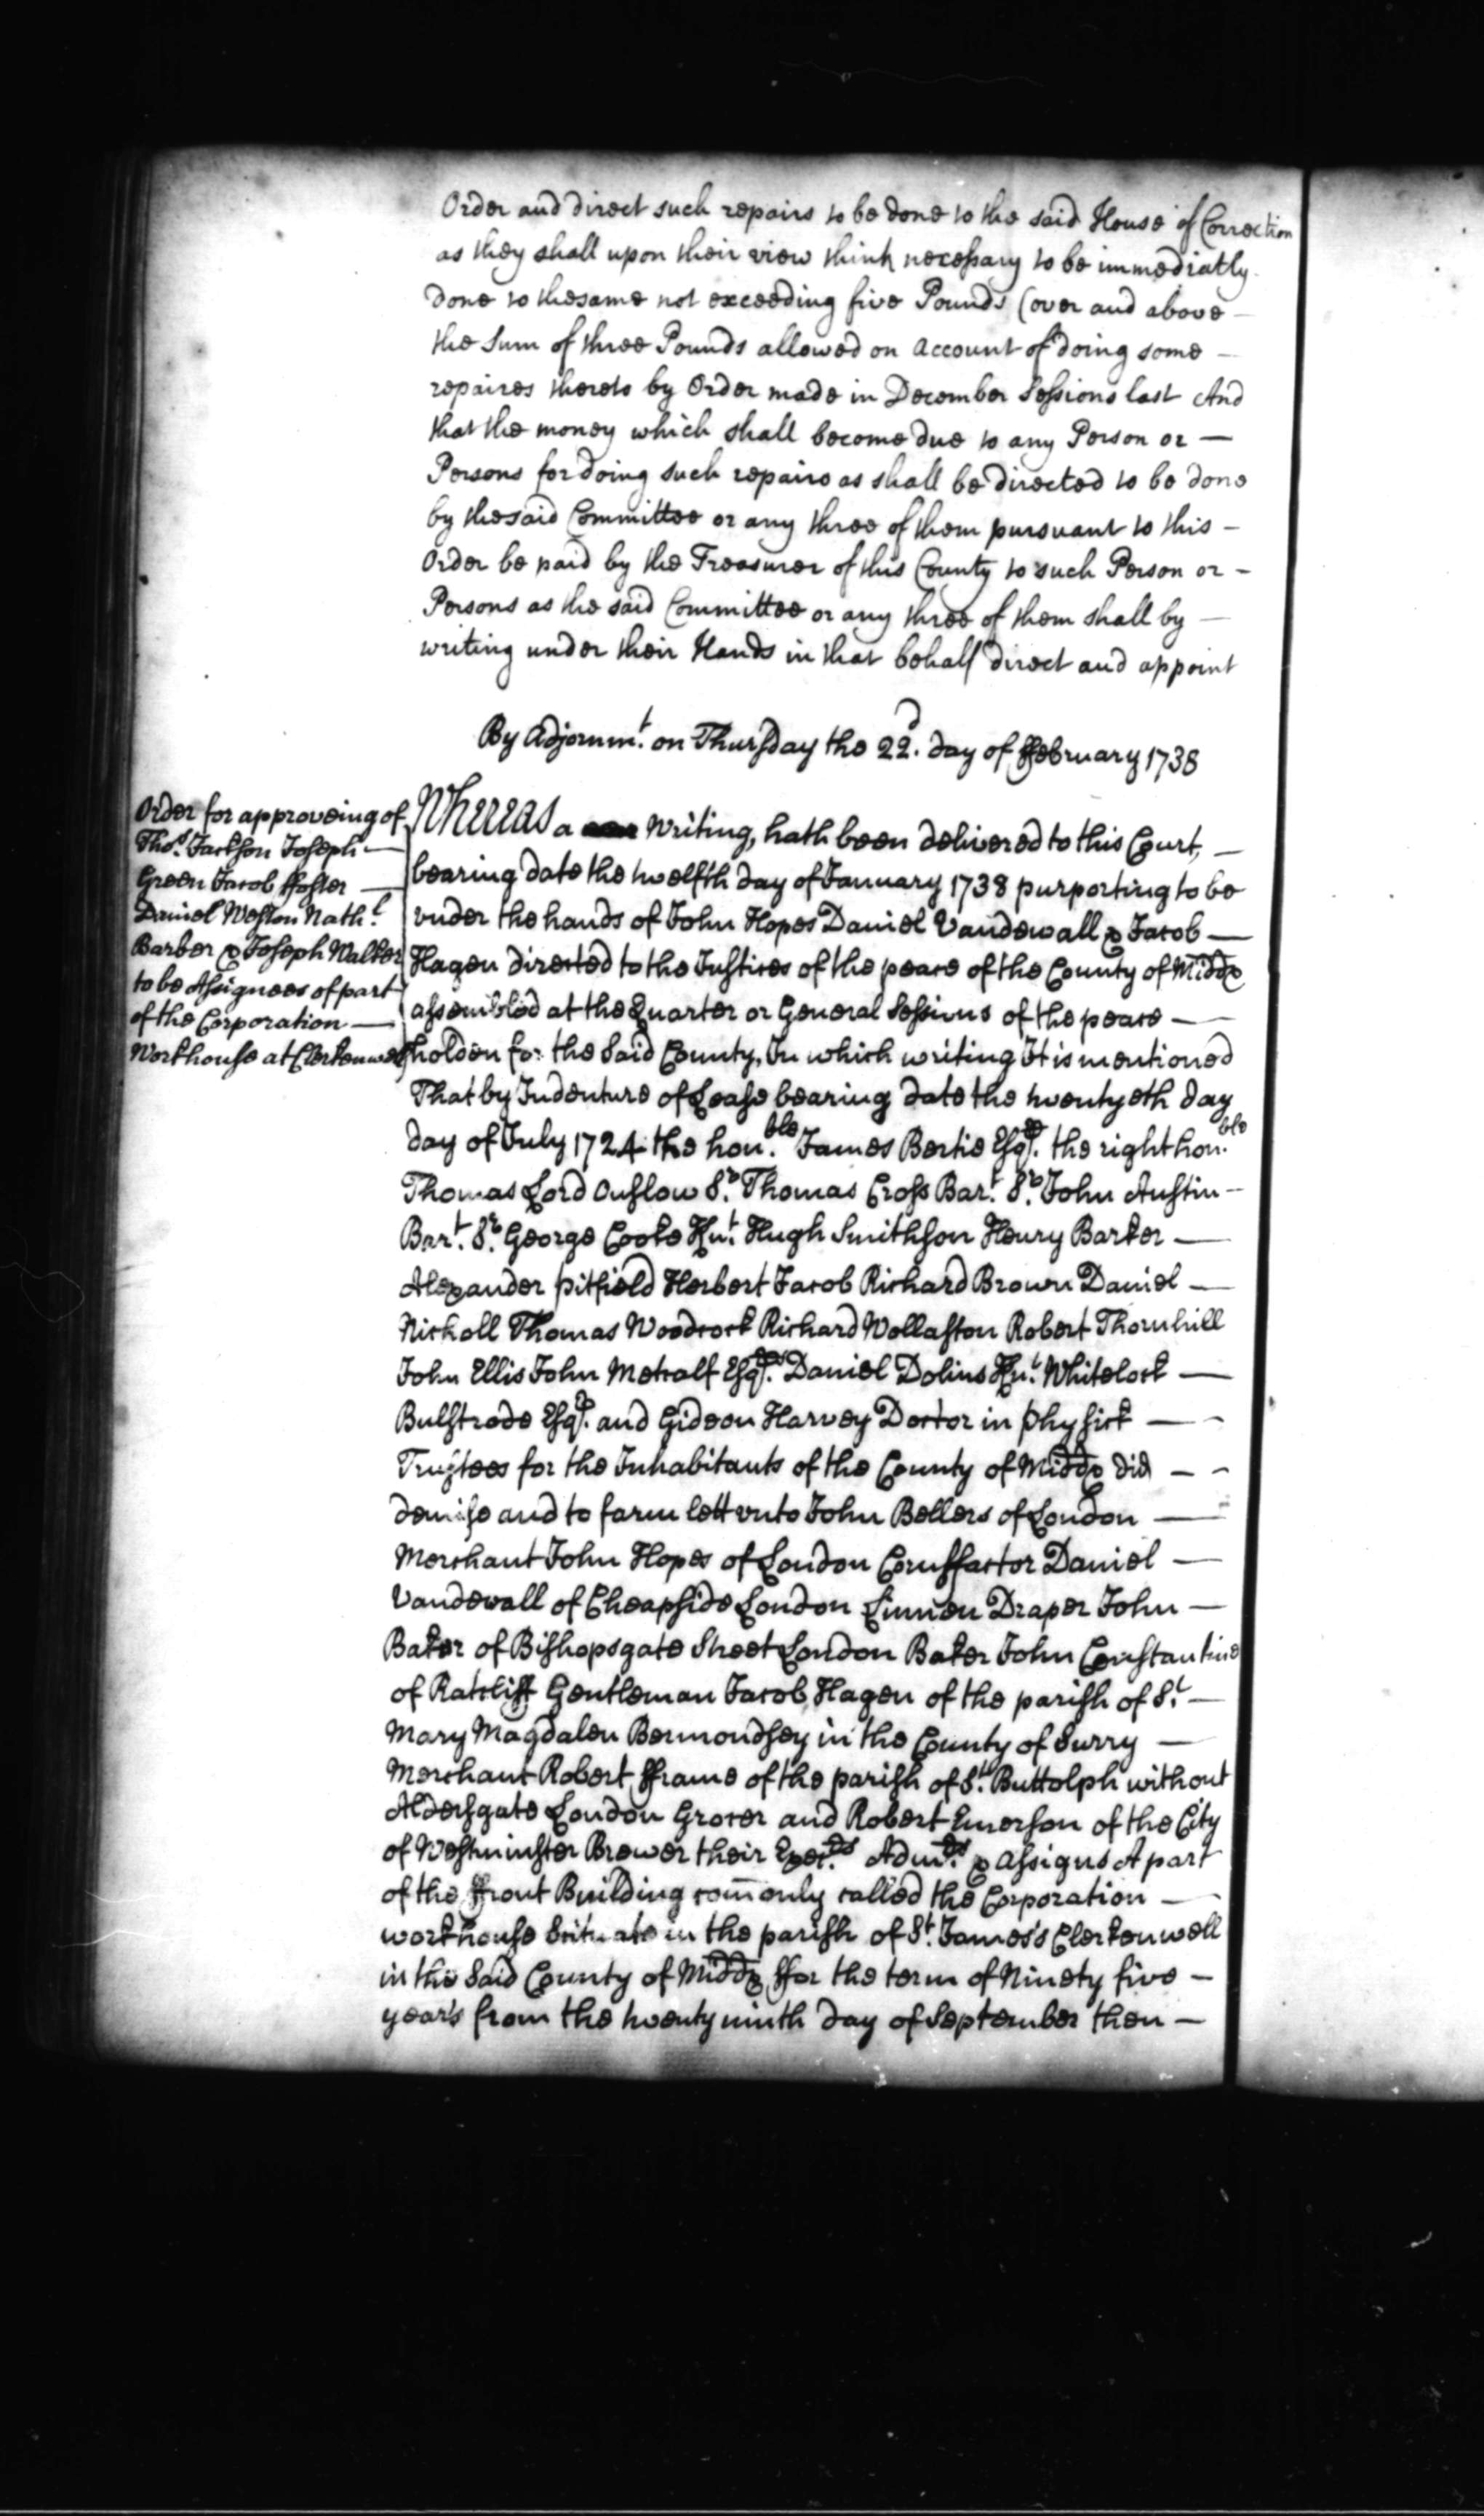 Order and direct such repairs to be done to the said House of Correction
as they shall upon their view think necessary to be immediatly
done to the same not exceeding five Pounds (over and above
the Sum of three Pounds allowed on Account of doing some
repaires thereto by Order made in December Sessions last And
that the money which shall become due to any Person or
Persons for doing such repairs as shall be directed to be done
by the said Committee or any three of them pursuant to this
Order be paid by the Treasurer of this County to such Person or
Persons as the said Committee or any three of them shall by
writing under their Hands in that behalf direct and appoint
By Adjornmt. on Thursday the 22d. day of ffebruary 1738
Order for approveing of
Thos. Jackson Joseph
Green Jacob ffoster
Daniel Weston Nathl.
Barber & Joseph Walker
to be Assignees of part
of the Corporation
Workhouse at Clerkenwell
Whereas a Writing, hath been delivered to this Court,
bearing date the twelfth day of January 1738 purporting to be
vnder the hands of John Hopes Daniel Vandewall & Jacob
Hagen directed to the Justices of the peace of the County of Middx
assembled at the Quarter or General Sessions of the peace
holden for the Said County, In which writing It is mentioned
That by Indenture of Lease bearing date the twentyeth day
day of July 1724 the honble. James Bertie Esqr. the right honble.
Thomas Lord Onslow Sr. Thomas Cross Bart. Sr. John Austin
Bart. Sr. George Cooke Knt. Hugh Smithson Henry Barker
Alexander pitfield Herbert Jacob Richard Brown Daniel
Nicholl Thomas Woodcock Richard Wollaston Robert Thornhill
John Ellis John Metcalf Esqrs. Daniel Dolins Knt. Whitelock
Bulstrode Esqr. and Gideon Harvey Doctor in physick
Trustees for the Inhabitants of the County of Middx did
demise and to farm lett vnto John Bellers of London
Merchant John Hopes of London Cornffactor Daniel
Vandewall of Cheapside London Linnen Draper John
Baker of Bishopsgate Street London Baker John Constantine
of Ratcliff Gentleman Jacob Hagen of the parish of St.
Mary Magdalen Bermondsey in the County of Surry
Merchant Robert fframe of the parish of St. Buttolph without
Aldersgate London Grocer and Robert Emerson of the City
of Westminster Brewer their Exectrs. Admrs. & Assigns A part
of the ffront Building comonly called the Corporation
workhouse Scituate in the parish of St. James's Clerkenwell
in the Said County of Middx ffor the term of Ninety five
year's from the twenty ninth day of September then